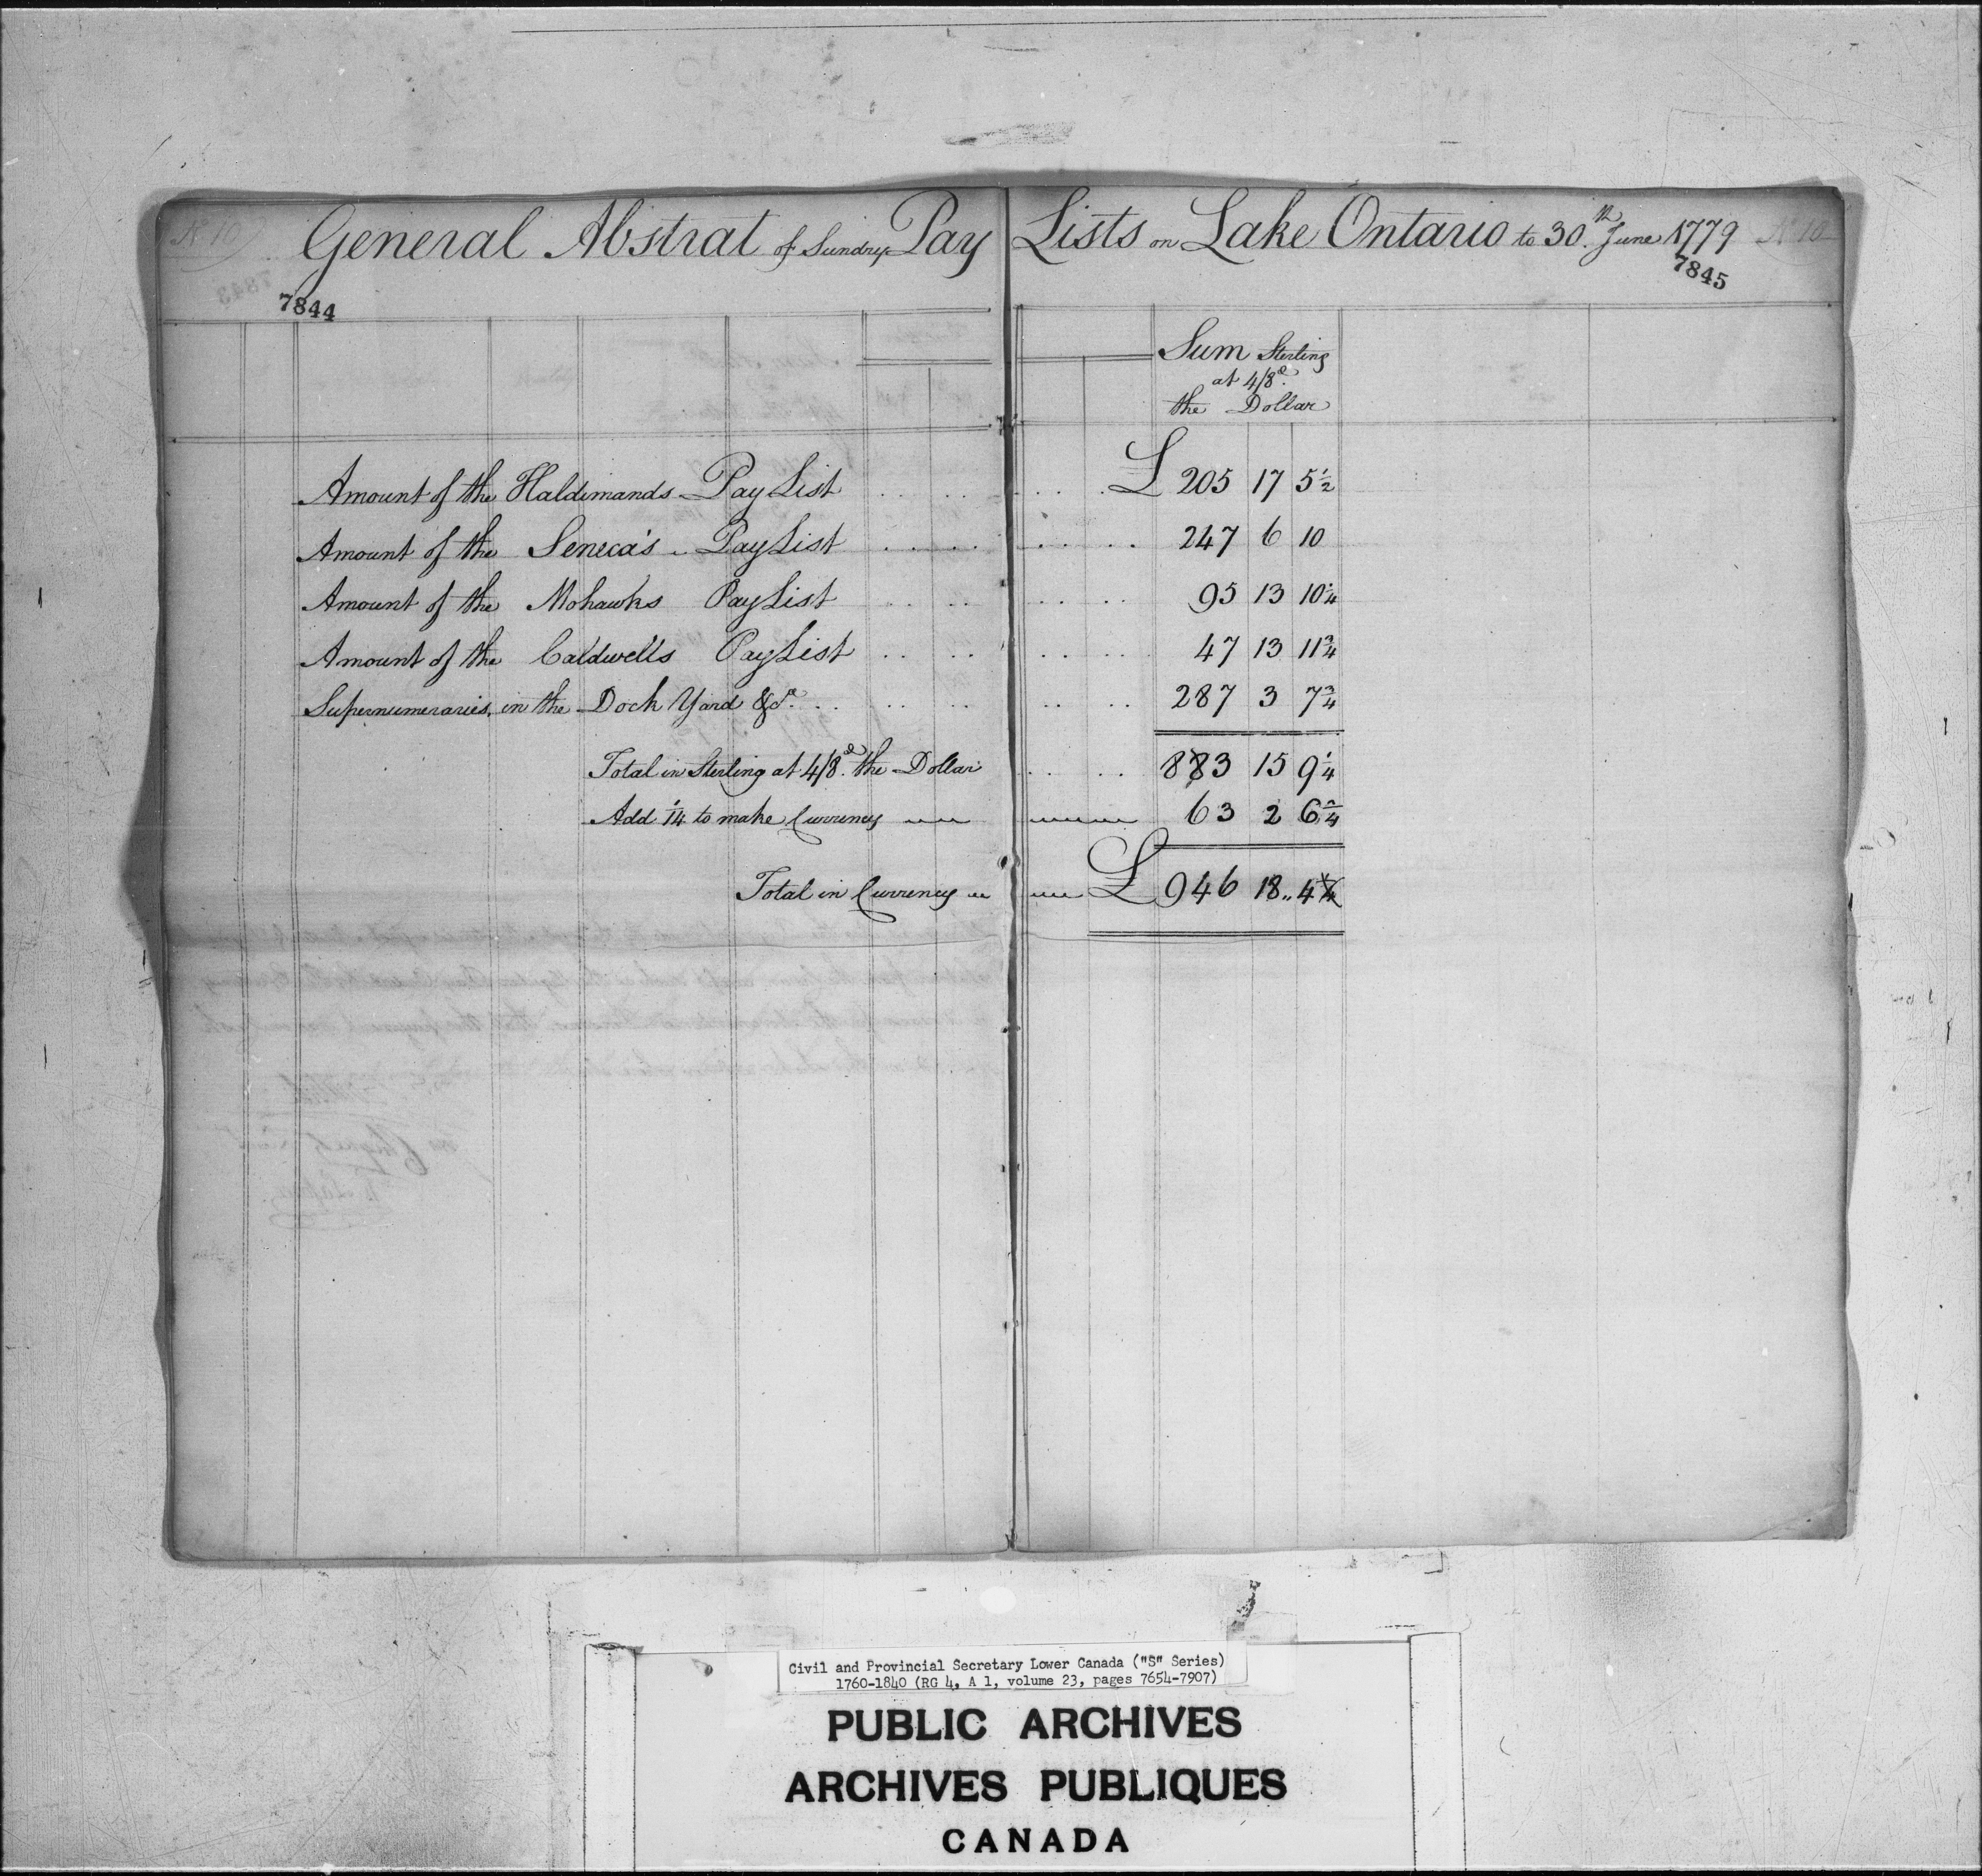 N 10 General Abstrat of Sundry Pay Lists on Lake Ontario to 30th June 1779 N 10
7844
7845
Sum Sterling
at 4/8d.
the Dollar
Amount of the Haldimands Pay List . . . . £ 205 17 5 1/2
Amount of the Seneca's Pay List . . . . 247 6 10
Amount of the Mohawks Pay List . . . . 95 13 10 1/4
Amount of the Caldwells Pay List . . . . 47 13 11 3/4
Supernumeraries in the Dock Yard &ca. . . . . 287 3 7 3/4
Total in Sterling at 4/8d. the Dollar . . . 883 15 9 1/4
Add 1/14 to make Currency 63 2 6 3/4
Total in Currency £ 946 18 4 1/4
Civil and Provincial Secretary Lower Canada ("S" Series)
1760-1840 (RG 4, A 1, volume 23, pages 7654-7907)
PUBLIC ARCHIVES
ARCHIVES PUBLIQUES
CANADA